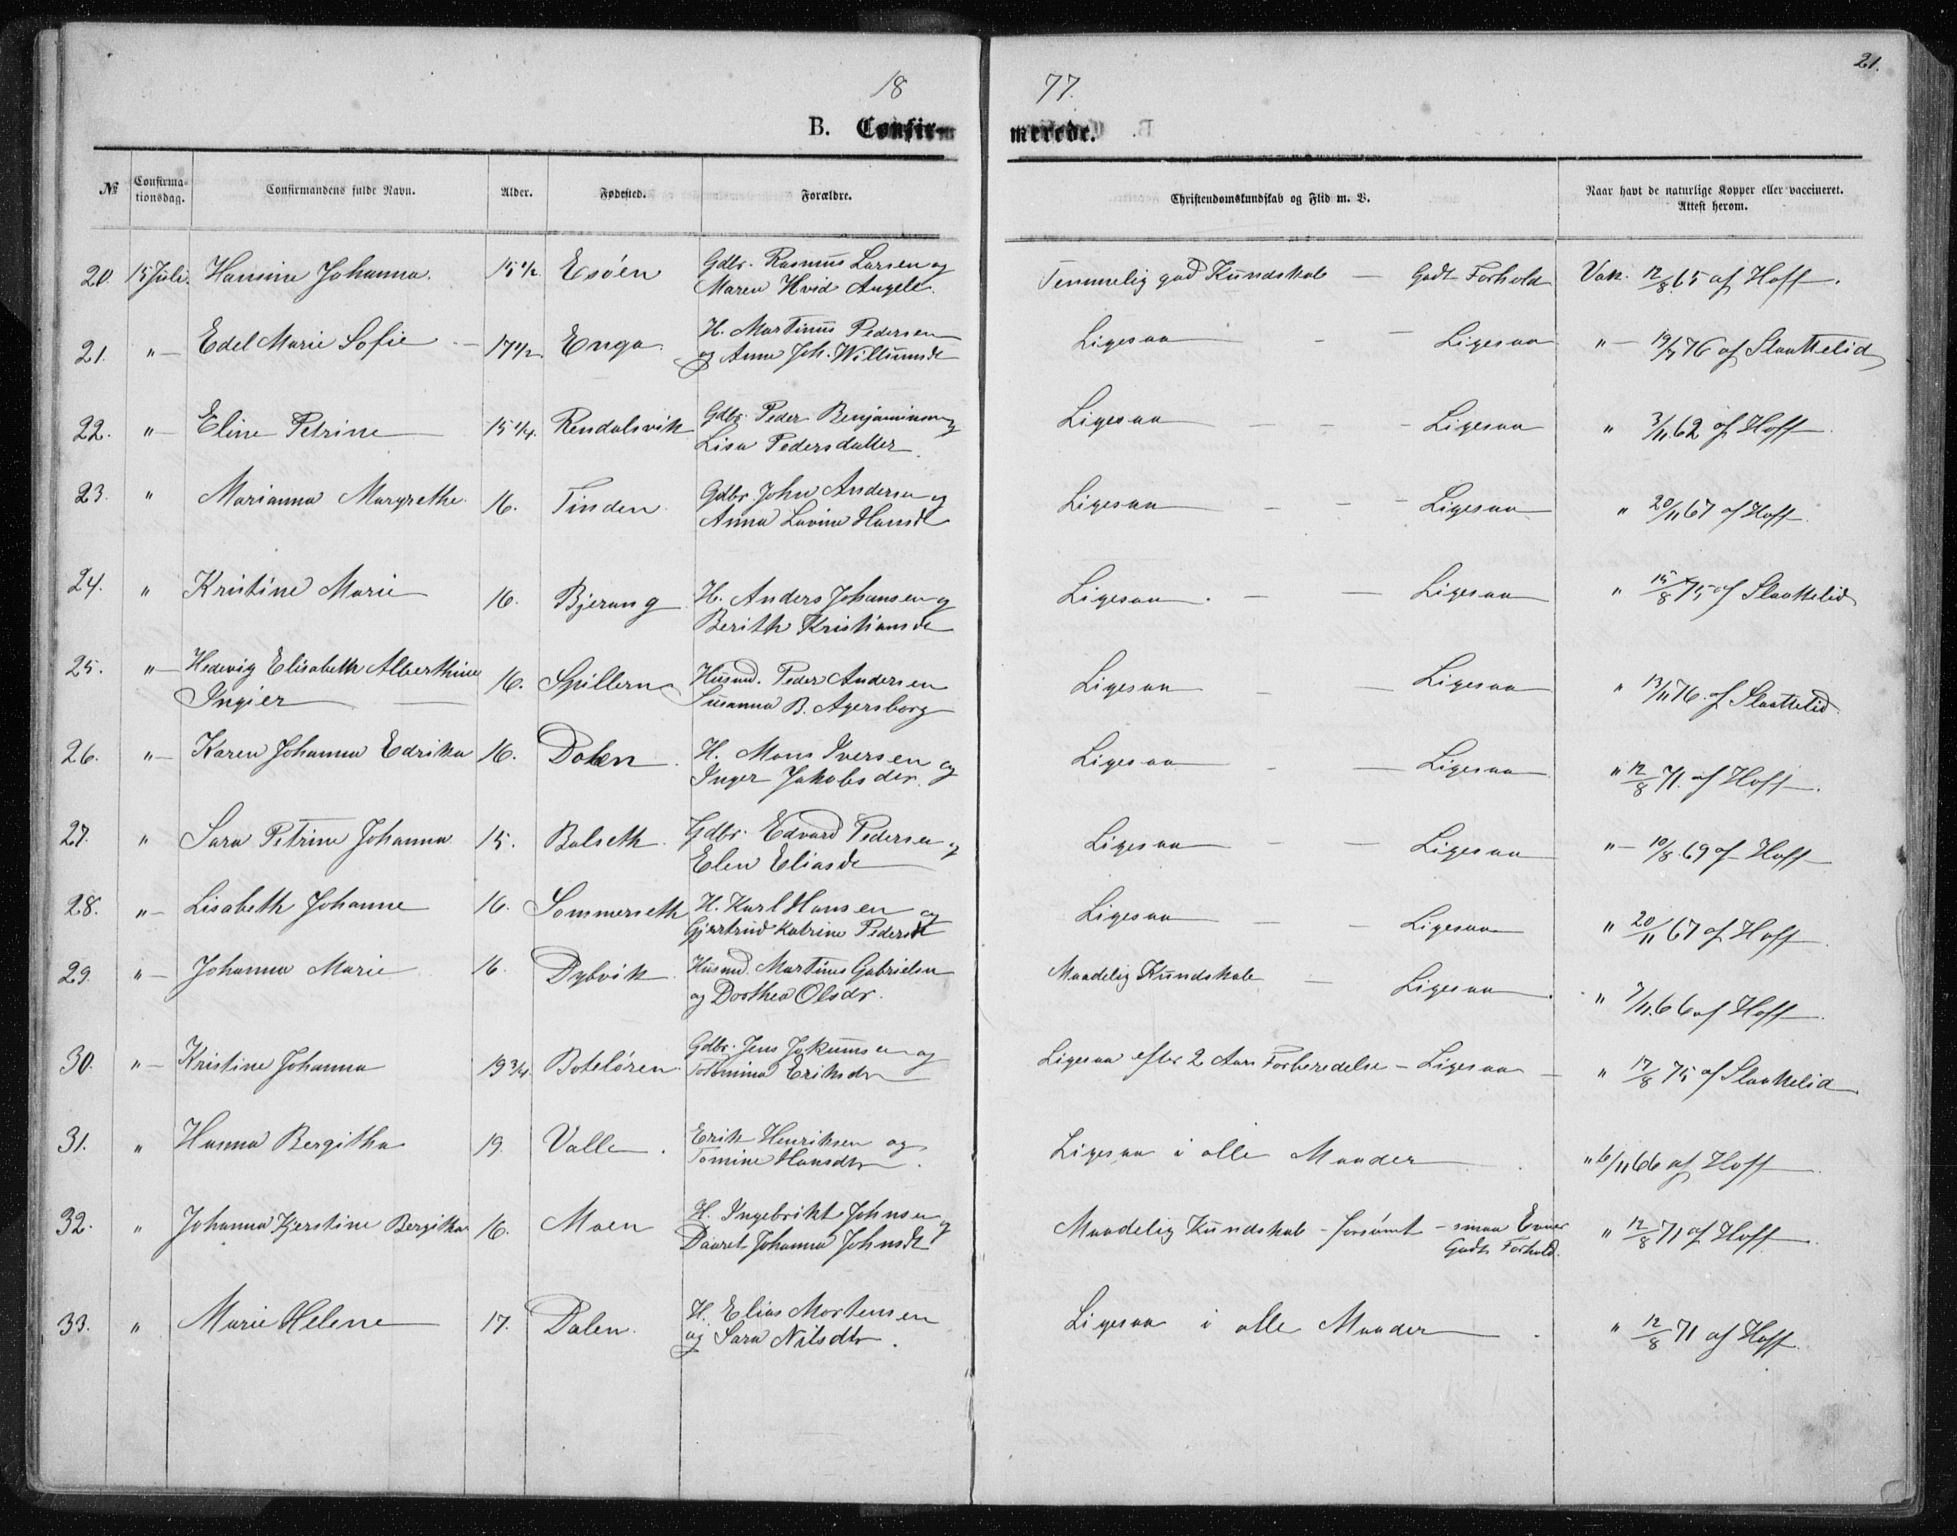 21.
18 77.
B. Confirmerede.
№ Confirmationsdag. Confirmandens fulde Navn. Alder. Fødested. Forældre. Christendomskundskab og Flid m. V. Naar havt de naturlige Kopper eller vaccineret. Attest herom.
20. 15 Juli. Hansine Johanna. 15 1/2 Esöen Gdbr. Rasmus Larsen og Maren Hvid Angell. Temmelig god Kundskab — Godt Forhold Vak. 12/8 65 af Hoff.
21. "— Edel Marie Sofie — 17 1/2 Enga H. Martinus Pedersen og Anna Joh. Willumsdr Ligesaa — Ligesaa "— 19/7 76 af Slaattelid
22. "— Eline Petrine 15 1/4. Rendalsvik Gdbr. Peder Benjaminsen og Lisa Pedersdatter. Ligesaa — — — Ligesaa " 3/11 62 af Hoff.
23. " Marianna Margrethe. 16. Tinden Gdbr. John Andersen og Anna Lovina Hansdr Ligesaa — — — Ligesaa " 20/11 67 af Hoff.
24. " Kristine Marie 16. Bjerang H. Anders Johansen og Berith Kristiansdr Ligesaa. — — Ligesaa " 15/8 75 af Slaattelid
25. "— Hedevig Elisabeth Alberthine Ingier — 16. Spillern Husmd. Peder Andersen Susanna B. Agersborg Ligesaa — — Ligesaa " 13/11 76. af Slaattelid.
26. "— Karen Johanna Edrika 16. Dalen. H. Mons Iversen og Inger Jakobsdr. Ligesaa — — Ligesaa " 12/8 71. af Hoff.
27. " Sara Petrine Johanna 15. Balseth. Gdbr. Edvard Pedersen og Elen Eliasdr Ligesaa — — Ligesaa "— 10/8. 69 af Hoff
28. "— Lisabeth Johanne 16. Sommerseth H. Karl Hansen og Gjertrud Katrine Pedersdr Ligesaa — — Ligesaa " 20/11 67 af Hoff.
29. "— Johanna Marie 16. Dybvik. Husmd. Martinus Gabrielsen og Dorthea Olsdr. Maadelig Kundskab — Ligesaa. " 7/11. 66 af Hoff.
30. "— Kristine Johanna 19 3/4. Gdbr. Jens og Eriksdr Ligesaa efter 2 Aars Forberedelse — Ligesaa — " 17/8 75 af Slaattelid
31. " Hanna Bergitha 19. Valle. Erik Henriksen og Tomine Hansdtr. Ligesaa i alle Maader. " 6/11 66 af Hoff.
32. " Johanna Kjerstine Bergitha 16. Moen H. Ingebrikt Johnsen og Johanna Johnsdr Maadelig Kundskab — forsömt — smaa Evner Godt Forhold. " 12/8 71 af Hoff.
33. " Marie Helene 17. Dalen. H. Elias Mortensen og Sara Nilsdtr. Ligesaa i alle Maader. " 12/8 71 af Hoff.